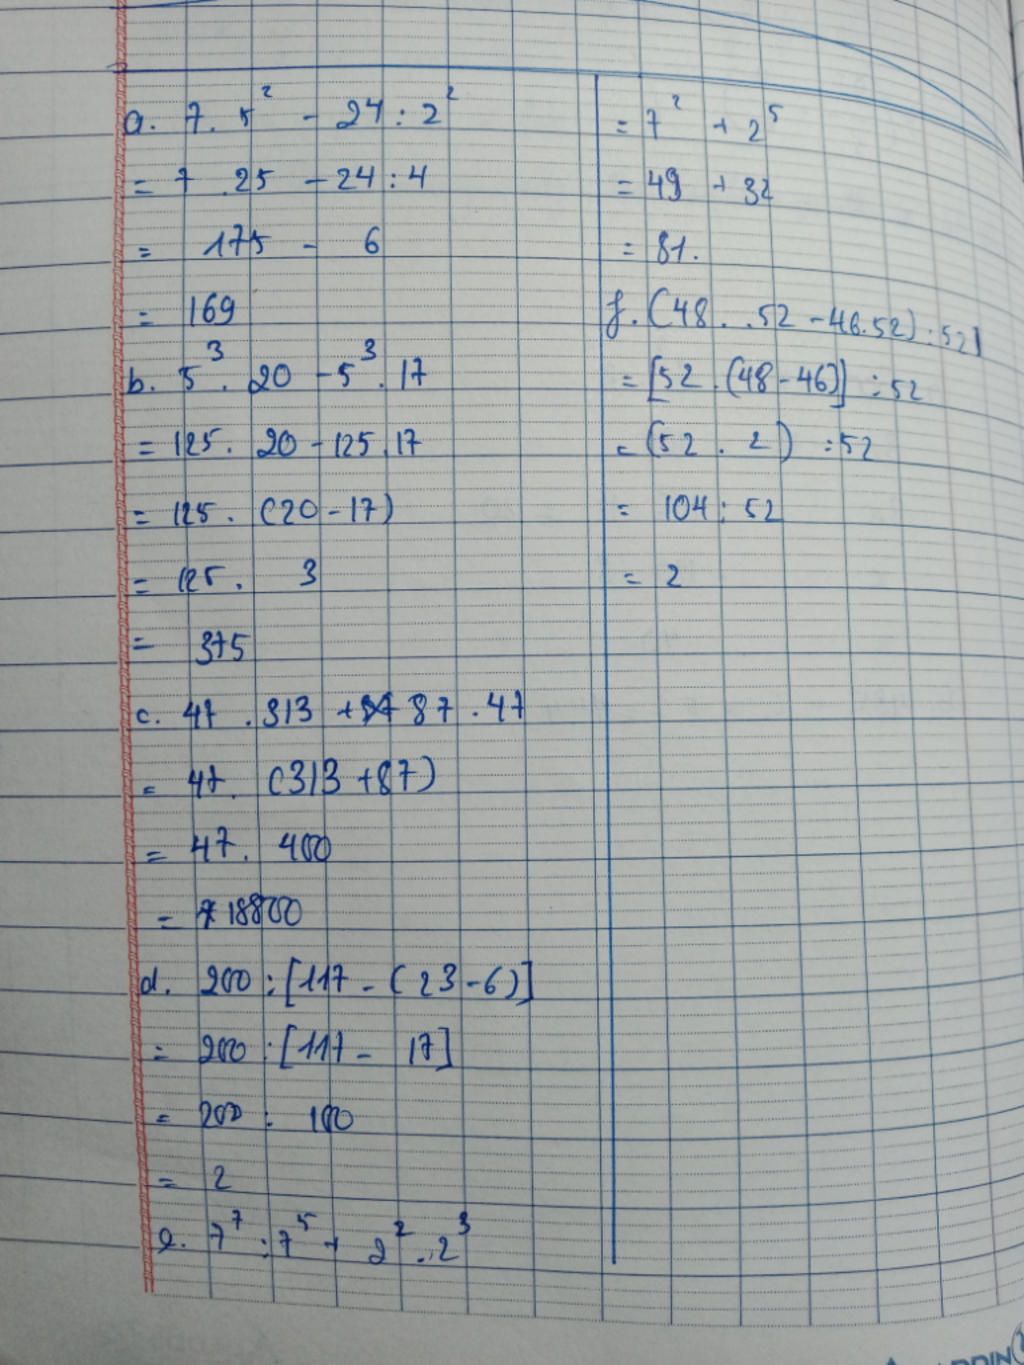 a. 7. 5² - 24 : 2²
= 7 . 25 - 24 : 4
= 175 - 6
= 169
b. 5³. 20 - 5³. 17
= 125. 20 - 125. 17
= 125. (20 - 17)
= 125. 3
= 375
c. 47 . 313 + 87 . 47
= 47. (313 + 87)
= 47. 400
= 18800
d. 200 : [117 - (23 - 6)]
= 200 : [117 - 17]
= 200 : 100
= 2
e. 7⁷ : 7⁵ + 2² . 2³
= 7² + 2⁵
= 49 + 32
= 81.
f. (48 . .52 - 46.52) : 52
= [52 . (48 - 46)] : 52
= (52 . 2) : 52
= 104 : 52
= 2